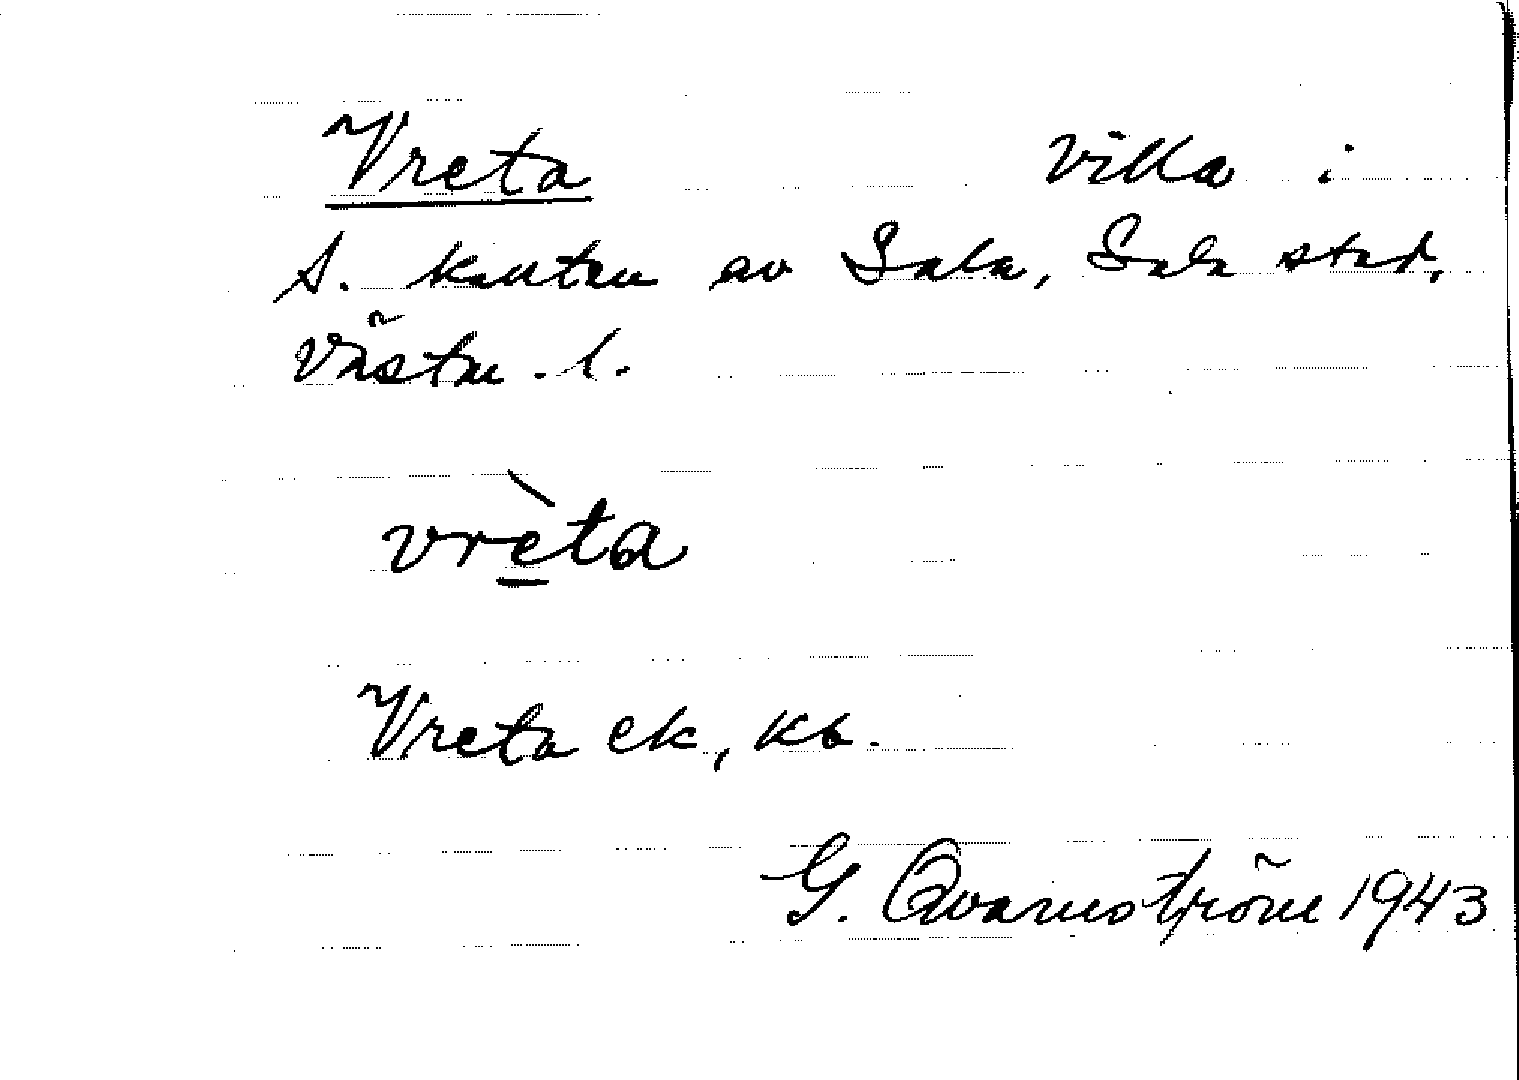 Vreta villa i
s. kanten av Sala, Sala stad,
Västm. l.
vrèta
Vreta ek, kb.
G. Qvarnström 1943